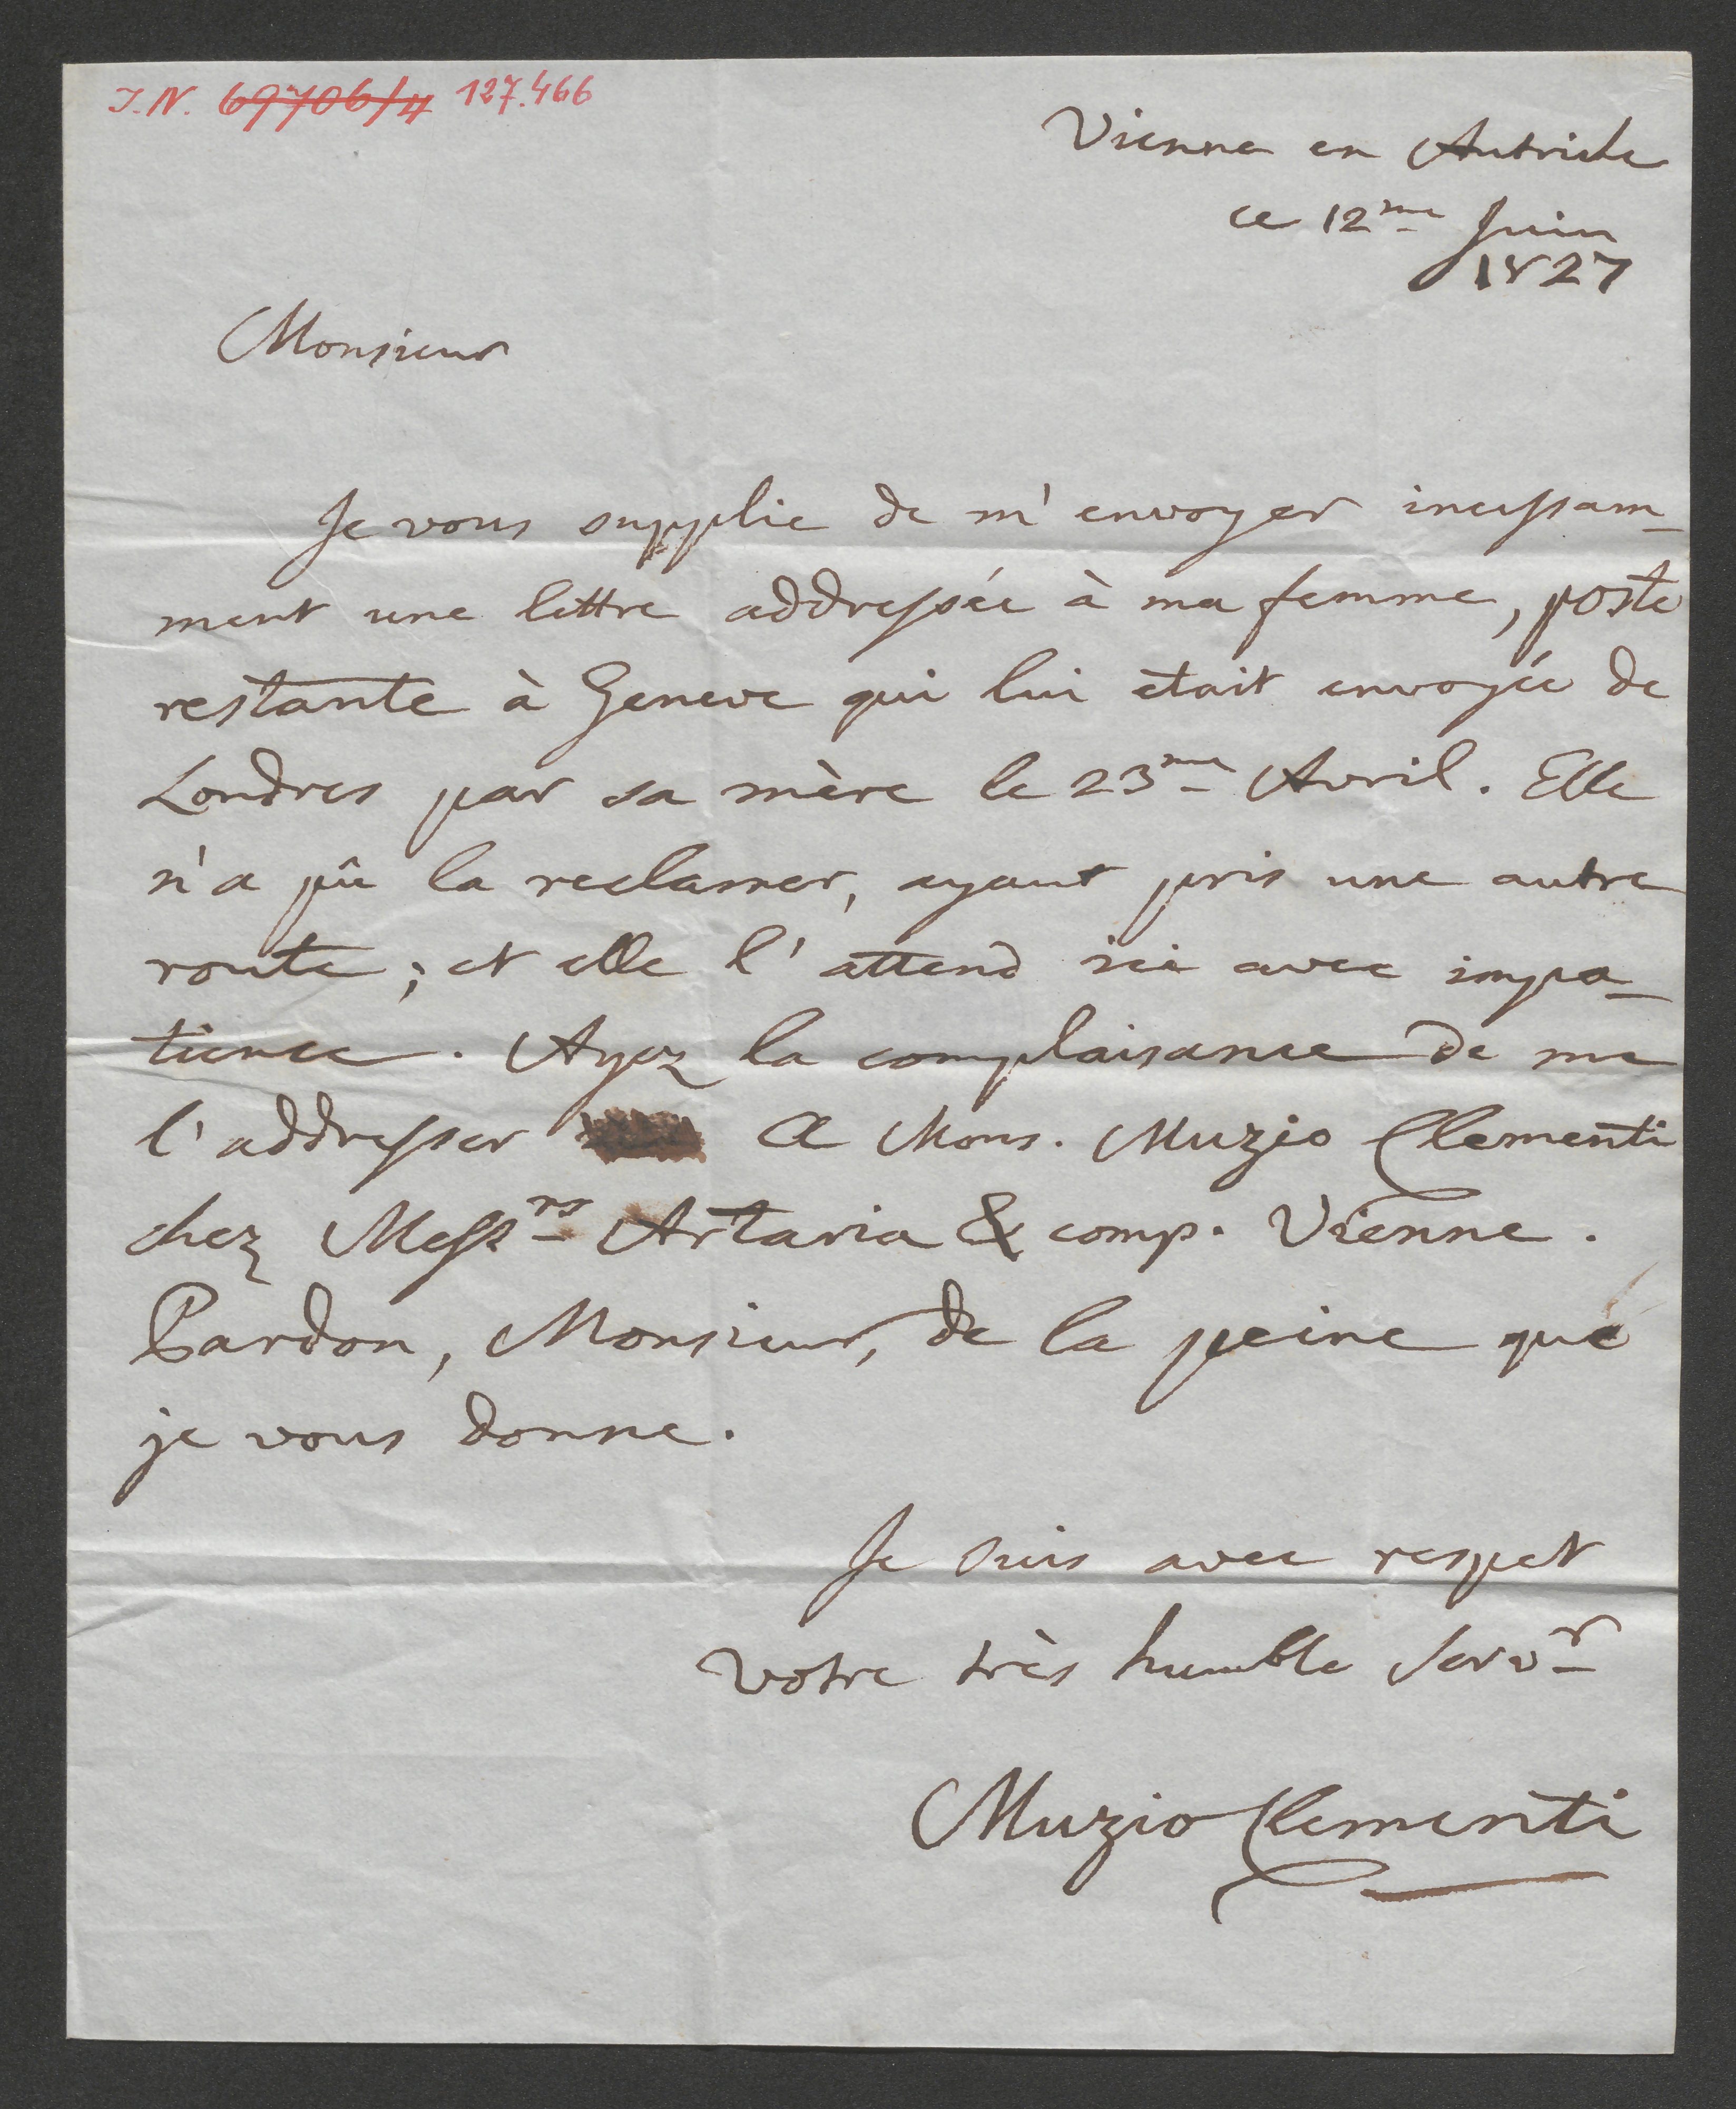 J.N. 69706/4 127.466
Vienne en Autriche
ce 12me Juin
1827
Monsieur
Je vous supplie de m'envoyer incessam-
ment une lettre addressée à ma femme, poste
restante à Geneve qui lui était envoyée de
Londres par sa mère le 23me Avril. Elle
n'a pû la reclamer, ayant pris une autre
route; et elle l'attend ici avec impa-
tience. Ayez la complaisance de me
l'addresser A Mons. Muzio Clementi
chez Messrs Artaria & comp. Vienne.
Pardon, Monsieur, de la peine que
je vous donne.
Je suis avec respect
Votre très humble Servr
Muzio Clementi